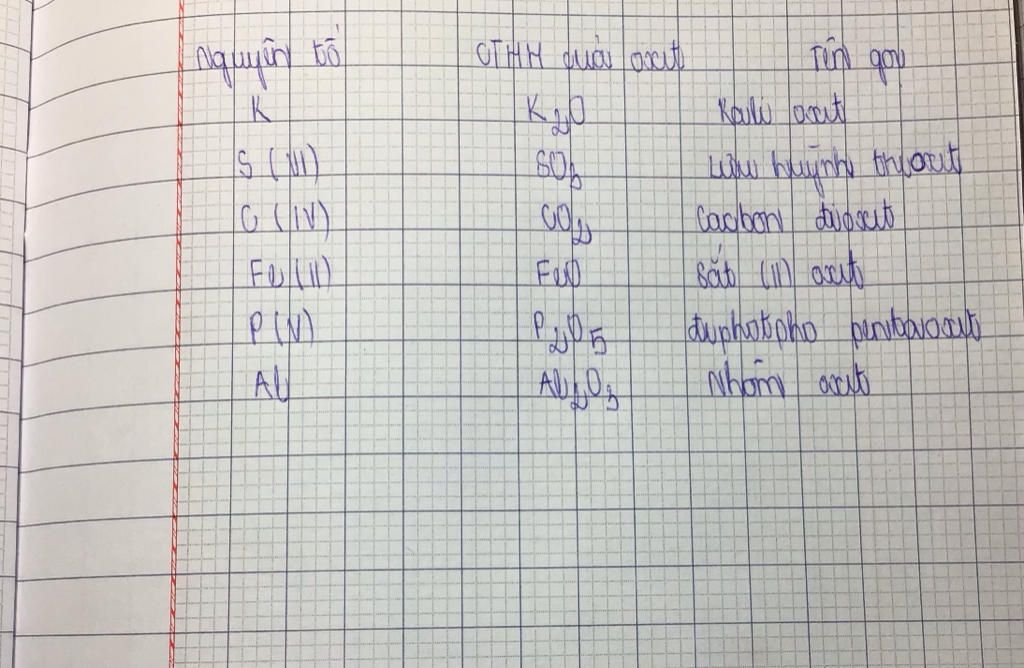 Nguyên tố CTHH của oxit Tên gọi
K K₂O Kali oxit
S (VI) SO₃ Lưu huỳnh trioxit
C (IV) CO₂ Cacbon đioxit
Fe (II) FeO Sắt (II) oxit
P (V) P₂O₅ điphotpho pentaoxit
Al Al₂O₃ Nhôm oxit